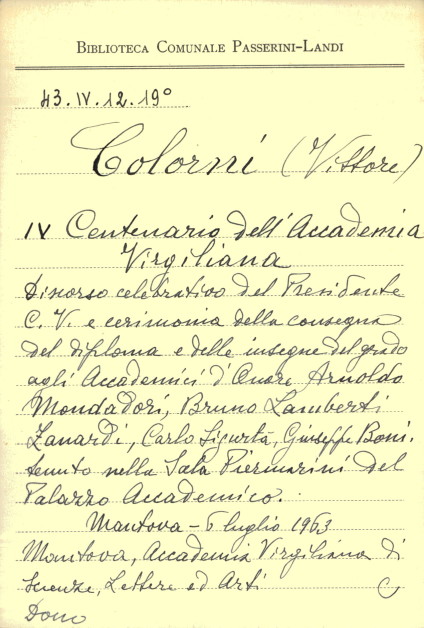 BIBLIOTECA COMUNALE PASSERINI-LANDI
43.IV.12.19°
Colorni (Vittore)
IV Centenario dell'Accademia
Virgiliana
Discorso celebrativo del Presidente
C. V. e cerimonia della consegna
del diploma e delle insegne del grado
agli Accademici d'Onore Arnoldo
Mondadori, Bruno Lamberti
Zanardi, Carlo Sigurtà, Giuseppe Boni.
tenuto nella Sala Piermarini del
Palazzo Accademico.
Mantova - 6 luglio 1963
Mantova, Accademia Virgiliana di
Scienze, Lettere ed Arti
Dono